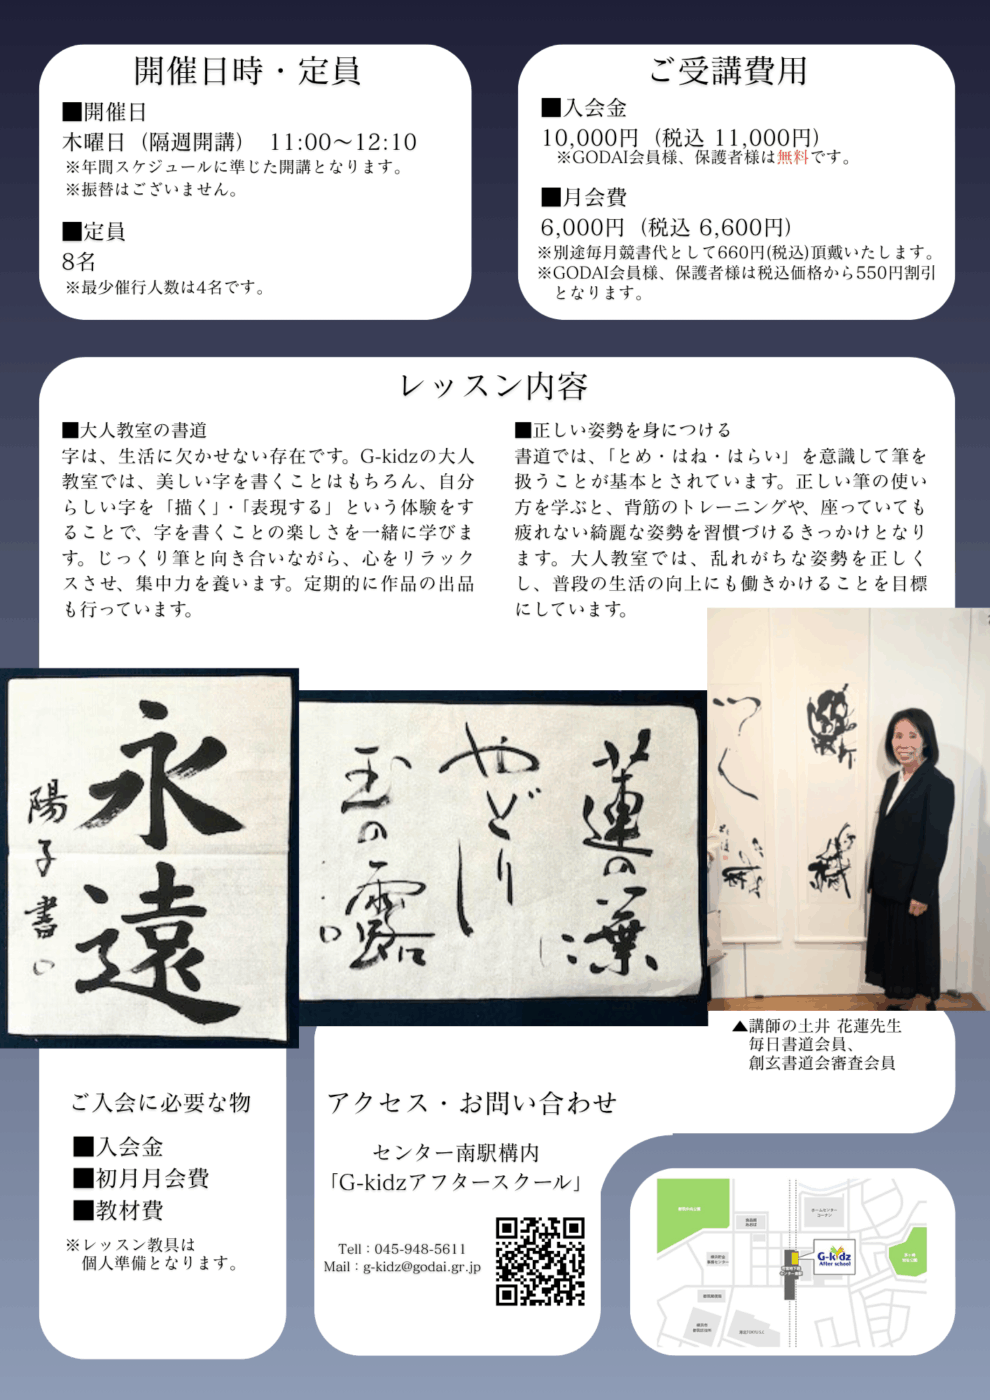 開催日時・定員
■開催日
木曜日（隔週開講） 11:00〜12:10
※年間スケジュールに準じた開講となります。
※振替はございません。
■定員
8名
※最少催行人数は4名です。
ご受講費用
■入会金
10,000円（税込 11,000円）
※GODAI会員様、保護者様は無料です。
■月会費
6,000円（税込 6,600円）
※別途毎月競書代として660円(税込)頂戴いたします。
※GODAI会員様、保護者様は税込価格から550円割引
となります。
レッスン内容
■大人教室の書道
字は、生活に欠かせない存在です。G-kidzの大人
教室では、美しい字を書くことはもちろん、自分
らしい字を「描く」・「表現する」という体験をす
ることで、字を書くことの楽しさを一緒に学びま
す。じっくり筆と向き合いながら、心をリラック
スさせ、集中力を養います。定期的に作品の出品
も行っています。
■正しい姿勢を身につける
書道では、「とめ・はね・はらい」を意識して筆を
扱うことが基本とされています。正しい筆の使い
方を学ぶと、背筋のトレーニングや、座っていても
疲れない綺麗な姿勢を習慣づけるきっかけとなり
ます。大人教室では、乱れがちな姿勢を正しく
し、普段の生活の向上にも働きかけることを目標
にしています。
永遠
陽子書
蓮の葉に
やどりし
玉の露
▲講師の土井 花蓮先生
毎日書道会員、
創玄書道会審査会員
ご入会に必要な物
■入会金
■初月月会費
■教材費
※レッスン教具は
個人準備となります。
アクセス・お問い合わせ
センター南駅構内
「G-kidzアフタースクール」
Tell：045-948-5611
Mail：g-kidz@godai.gr.jp
G-kidz
After school